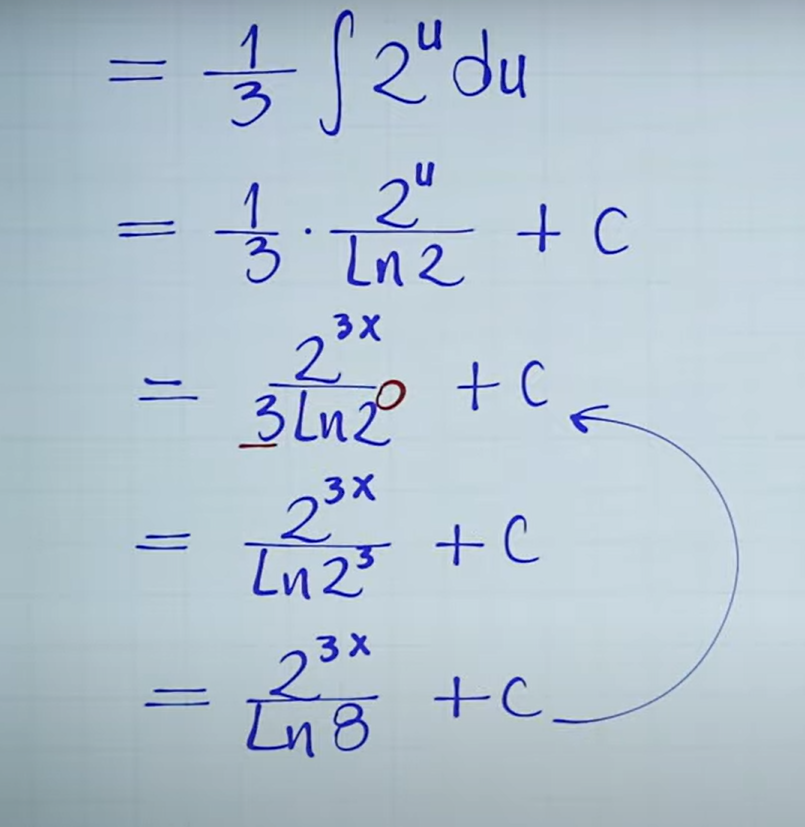 = 1/3 ∫ 2^u du
= 1/3 · 2^u / Ln 2 + C
= 2^3x / 3Ln2 + C
= 2^3x / Ln2^3 + C
= 2^3x / Ln8 + C